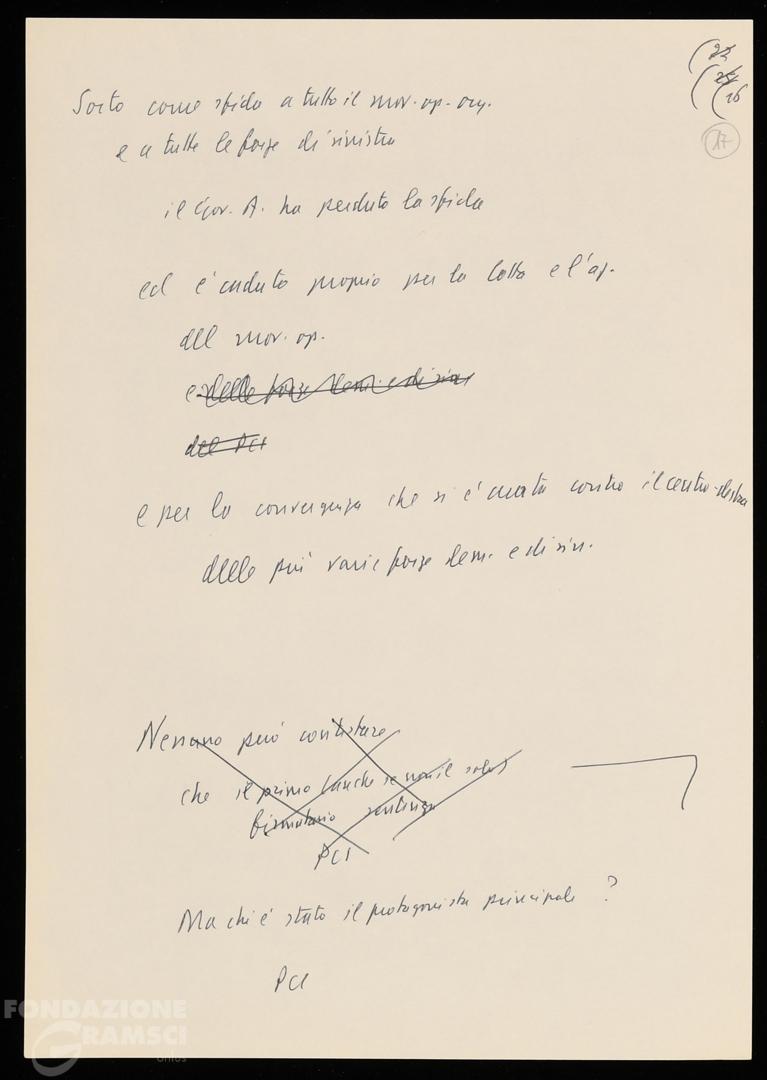 (22
(25
(16
17
Sorto come sfida a tutto il mov. op. org.
e a tutte le forze di sinistra
il Gov. A. ha perduto la sfida
ed è caduto proprio per la lotta e l'az.
del mov. op.
e delle forze dem. e di sin.
del PCI
e per la convergenza che si è creata contro il centro-destra
delle più varie forze dem. e di sin.
Nessuno può contestare
che il primo (anche se non il solo)
firmatario sentenza
PCI
Ma chi è stato il protagonista principale ?
PCI
FONDAZIONE
GRAMSCI
onlus